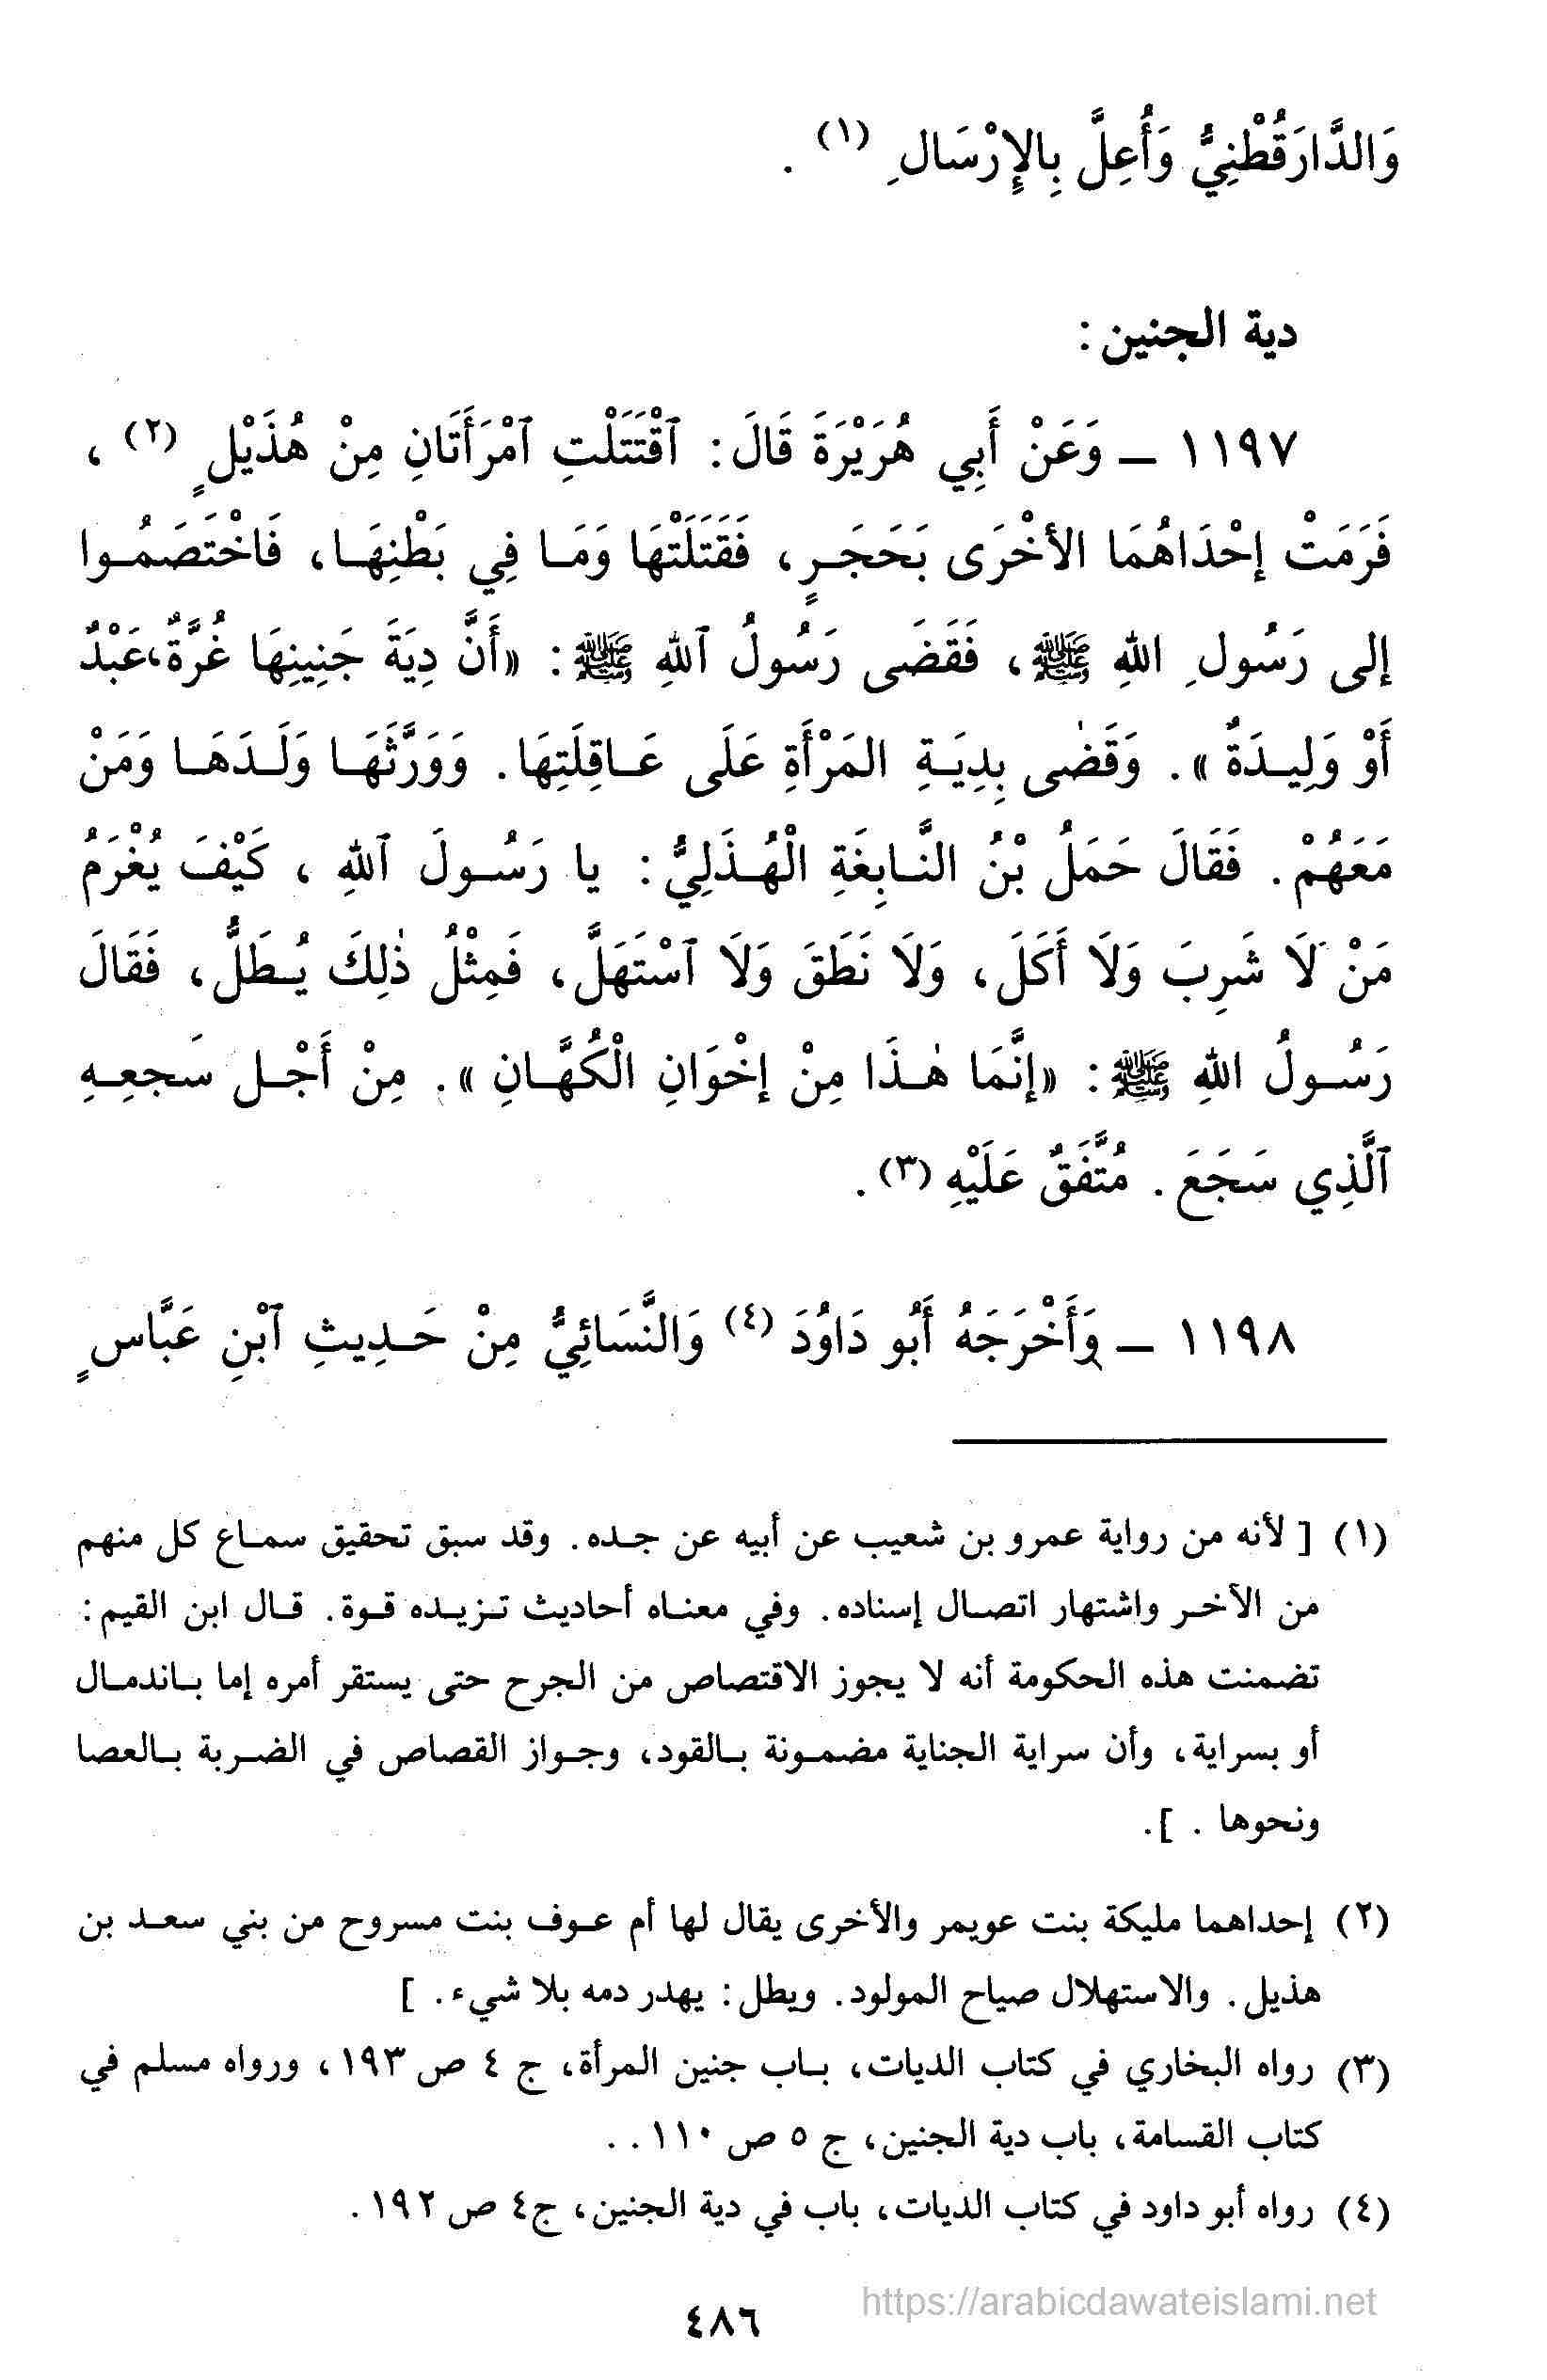 وَالدَّارَقُطْنِيُّ وَأُعِلَّ بِالإِرْسَالِ (١) .
دية الجنين :
١١٩٧ ــ وَعَنْ أَبِي هُرَيْرَةَ قَالَ: ٱقْتَتَلَتِ ٱمْرَأَتَانِ مِنْ هُذَيْلٍ (٢) ،
فَرَمَتْ إحْدَاهُمَا الأخْرَى بَحَجَـرٍ، فَقَتَلَتْهَا وَمَـا فِي بَطْنِهَـا، فَاخْتَصَمُـوا
إلى رَسُولِ اللهِ ﷺ، فَقَضَى رَسُولُ ٱللهِ ﷺ: «أَنَّ دِيَةَ جَنِينِهَا غُرَّةٌ،عَبْدٌ
أَوْ وَلِيـدَةٌ». وَقَضٰى بِدِيَـةِ المَرْأَةِ عَلَى عَـاقِلَتِهَا. وَوَرَّثَهَـا وَلَـدَهَـا وَمَنْ
مَعَهُمْ. فَقَالَ حَمَلُ بْنُ النَّـابِغَةِ الْهُـذَلِيُّ: يا رَسُـولَ ٱللهِ ، كَيْفَ يُغْرَمُ
مَنْ لَا شَرِبَ وَلَا أَكَلَ، وَلَا نَطَقَ وَلَا ٱسْتَهَلَّ، فَمِثْلُ ذٰلِكَ يُـطَلُّ، فَقَالَ
رَسُـولُ اللهِ ﷺ: «إنَّمَا هٰـذَا مِنْ إخْوَانِ الْكُهَّـانِ». مِنْ أَجْـل سَجعِـهِ
ٱلَّذِي سَجَعَ. مُتَّفَقٌ عَلَيْهِ (٣).
١١٩٨ ــ وَأَخْرَجَهُ أَبُو دَاوُدَ (٤) وَالنَّسَائِيُّ مِنْ حَـدِيثِ ٱبْنِ عَبَّاسٍ
(١) [ لأنه من رواية عمرو بن شعيب عن أبيه عن جـده. وقد سبق تحقيق سمـاع كل منهم
من الآخـر واشتهار اتصـال إسناده. وفي معنـاه أحاديث تـزيـده قـوة. قـال ابن القيم:
تضمنت هذه الحكومة أنه لا يجوز الاقتصاص من الجرح حتى يستقر أمره إما بـاندمـال
أو بسراية، وأن سراية الجناية مضمـونة بـالقود، وجـواز القصاص في الضـربة بـالعصا
ونحوها . ].
(٢) إحداهما مليكة بنت عويمر والأخرى يقال لها أم عـوف بنت مسروح من بني سعـد بن
هذيل. والاستهلال صياح المولود. ويطل: يهدر دمه بلا شيء. ]
(٣) رواه البخاري في كتاب الديات، بـاب جنين المرأة، ج ٤ ص ١٩٣، ورواه مسلم في
كتاب القسامة، باب دية الجنين، ج ٥ ص ١١٠. .
(٤) رواه أبو داود في كتاب الديات، باب في دية الجنين، ج٤ ص ١٩٢.
https://arabicdawateislami.net
٤٨٦